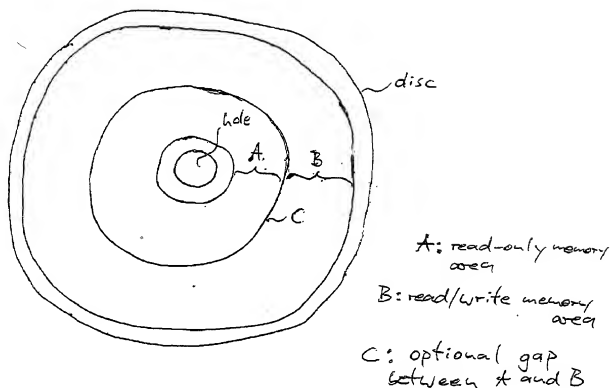 disc
hole
A
B
C
A: read-only memory
area
B: read/write memory
area
C: optional gap
between A and B